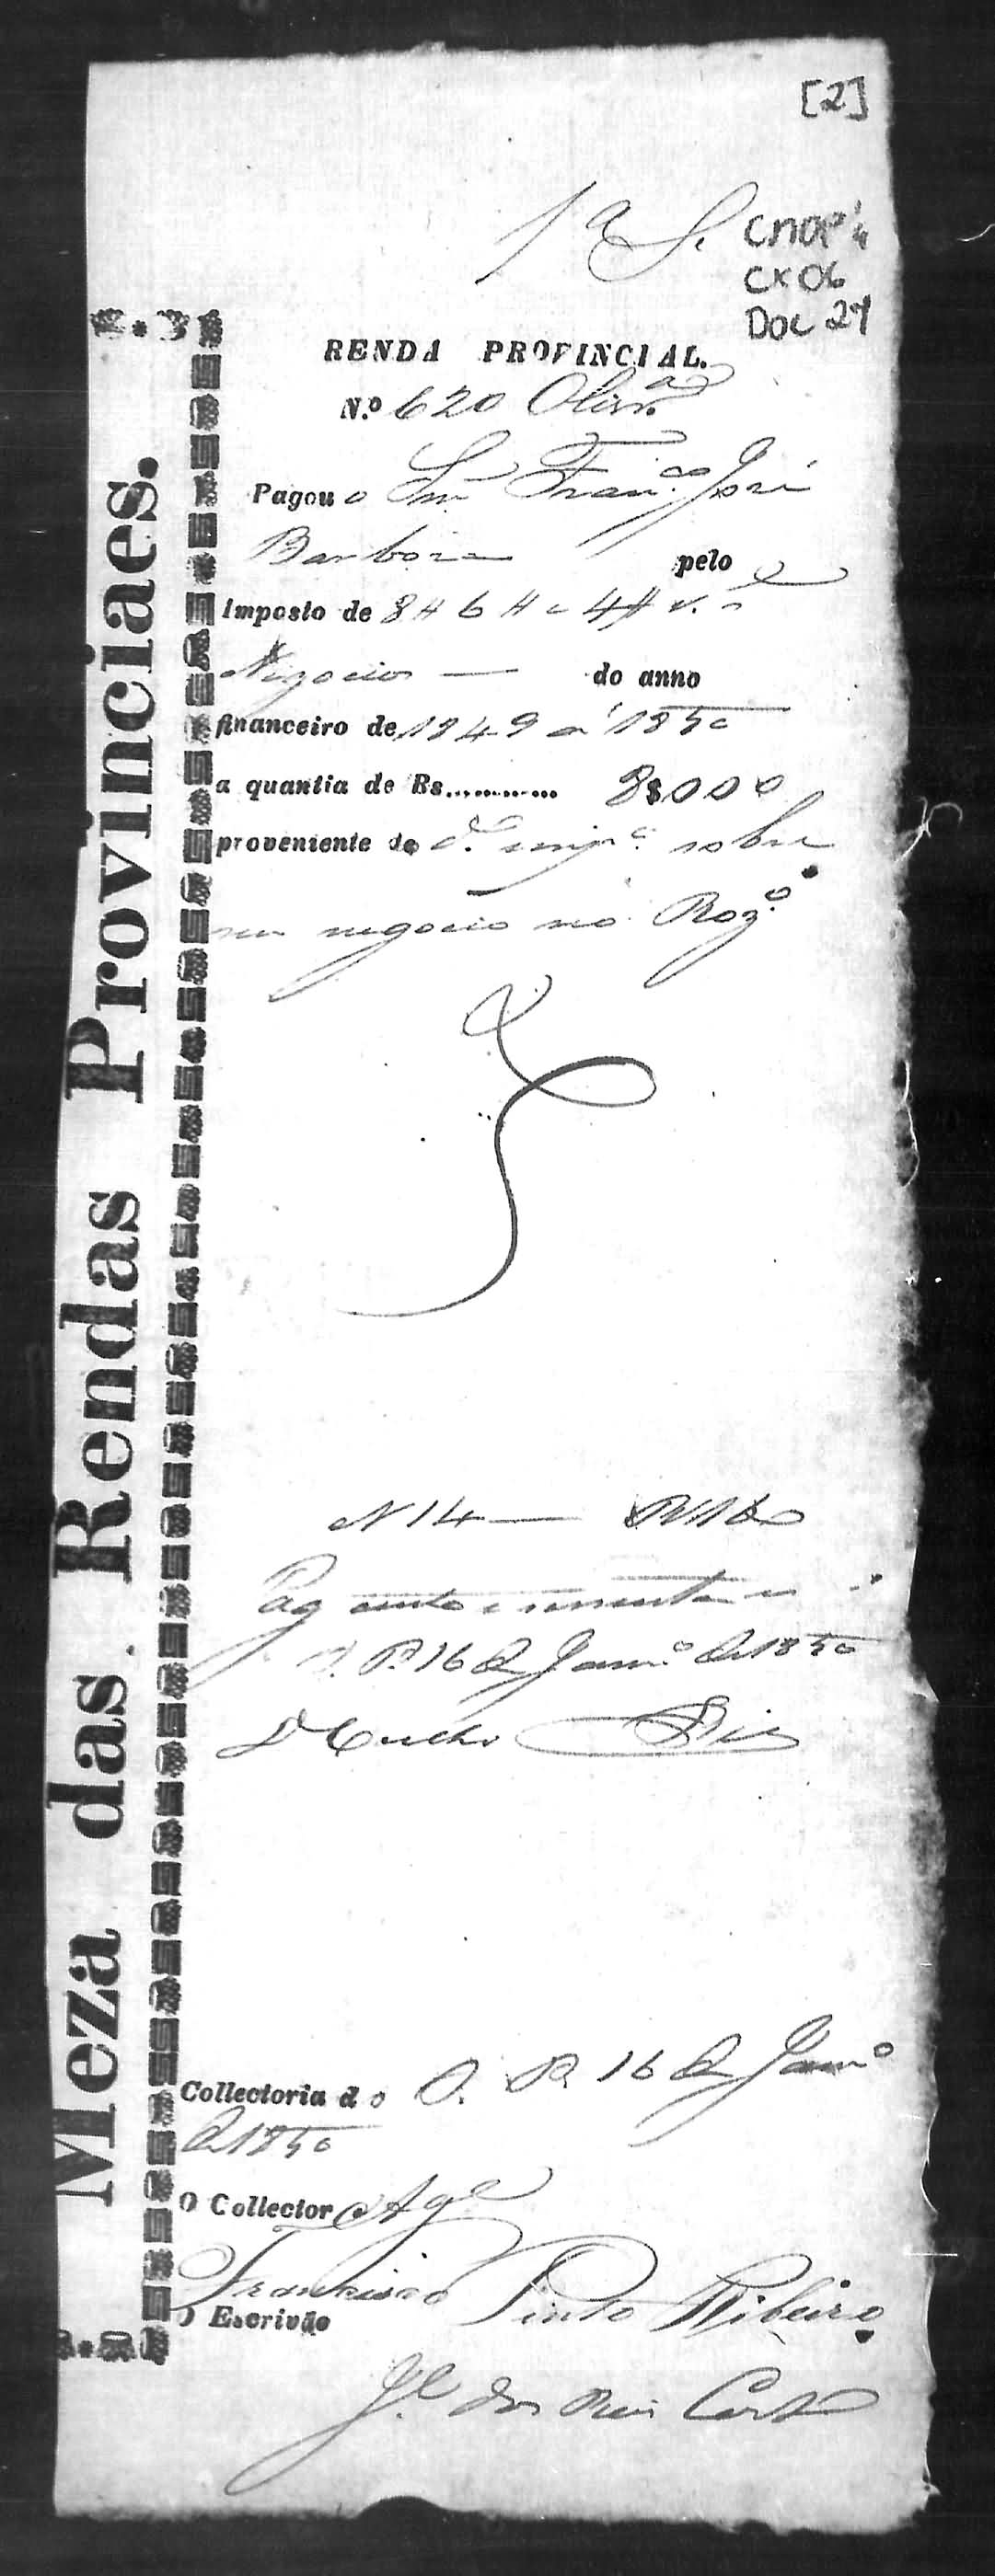 [2]
1ª S.
CX 06
DOC 27
Meza das Rendas Provinciaes.
RENDA PROVINCIAL.
N.º 620 Olivrª
Pagou o Snr Franco José
Barboza pelo
Imposto de
Negocios — do anno
financeiro de 1849 a 1850
a quantia de Rs............ 8$000
proveniente de d.º impº sobre
seu negocio no Rozº
N 14 — R 160
Pag cento e sessenta rs
O. P. 16 de Janrº de 1850
Collectoria do O. P. 16 de Janrº
de 1850
O Collector
Francisco Pinto Ribeiro
O Escrivão
Jº dos Reis